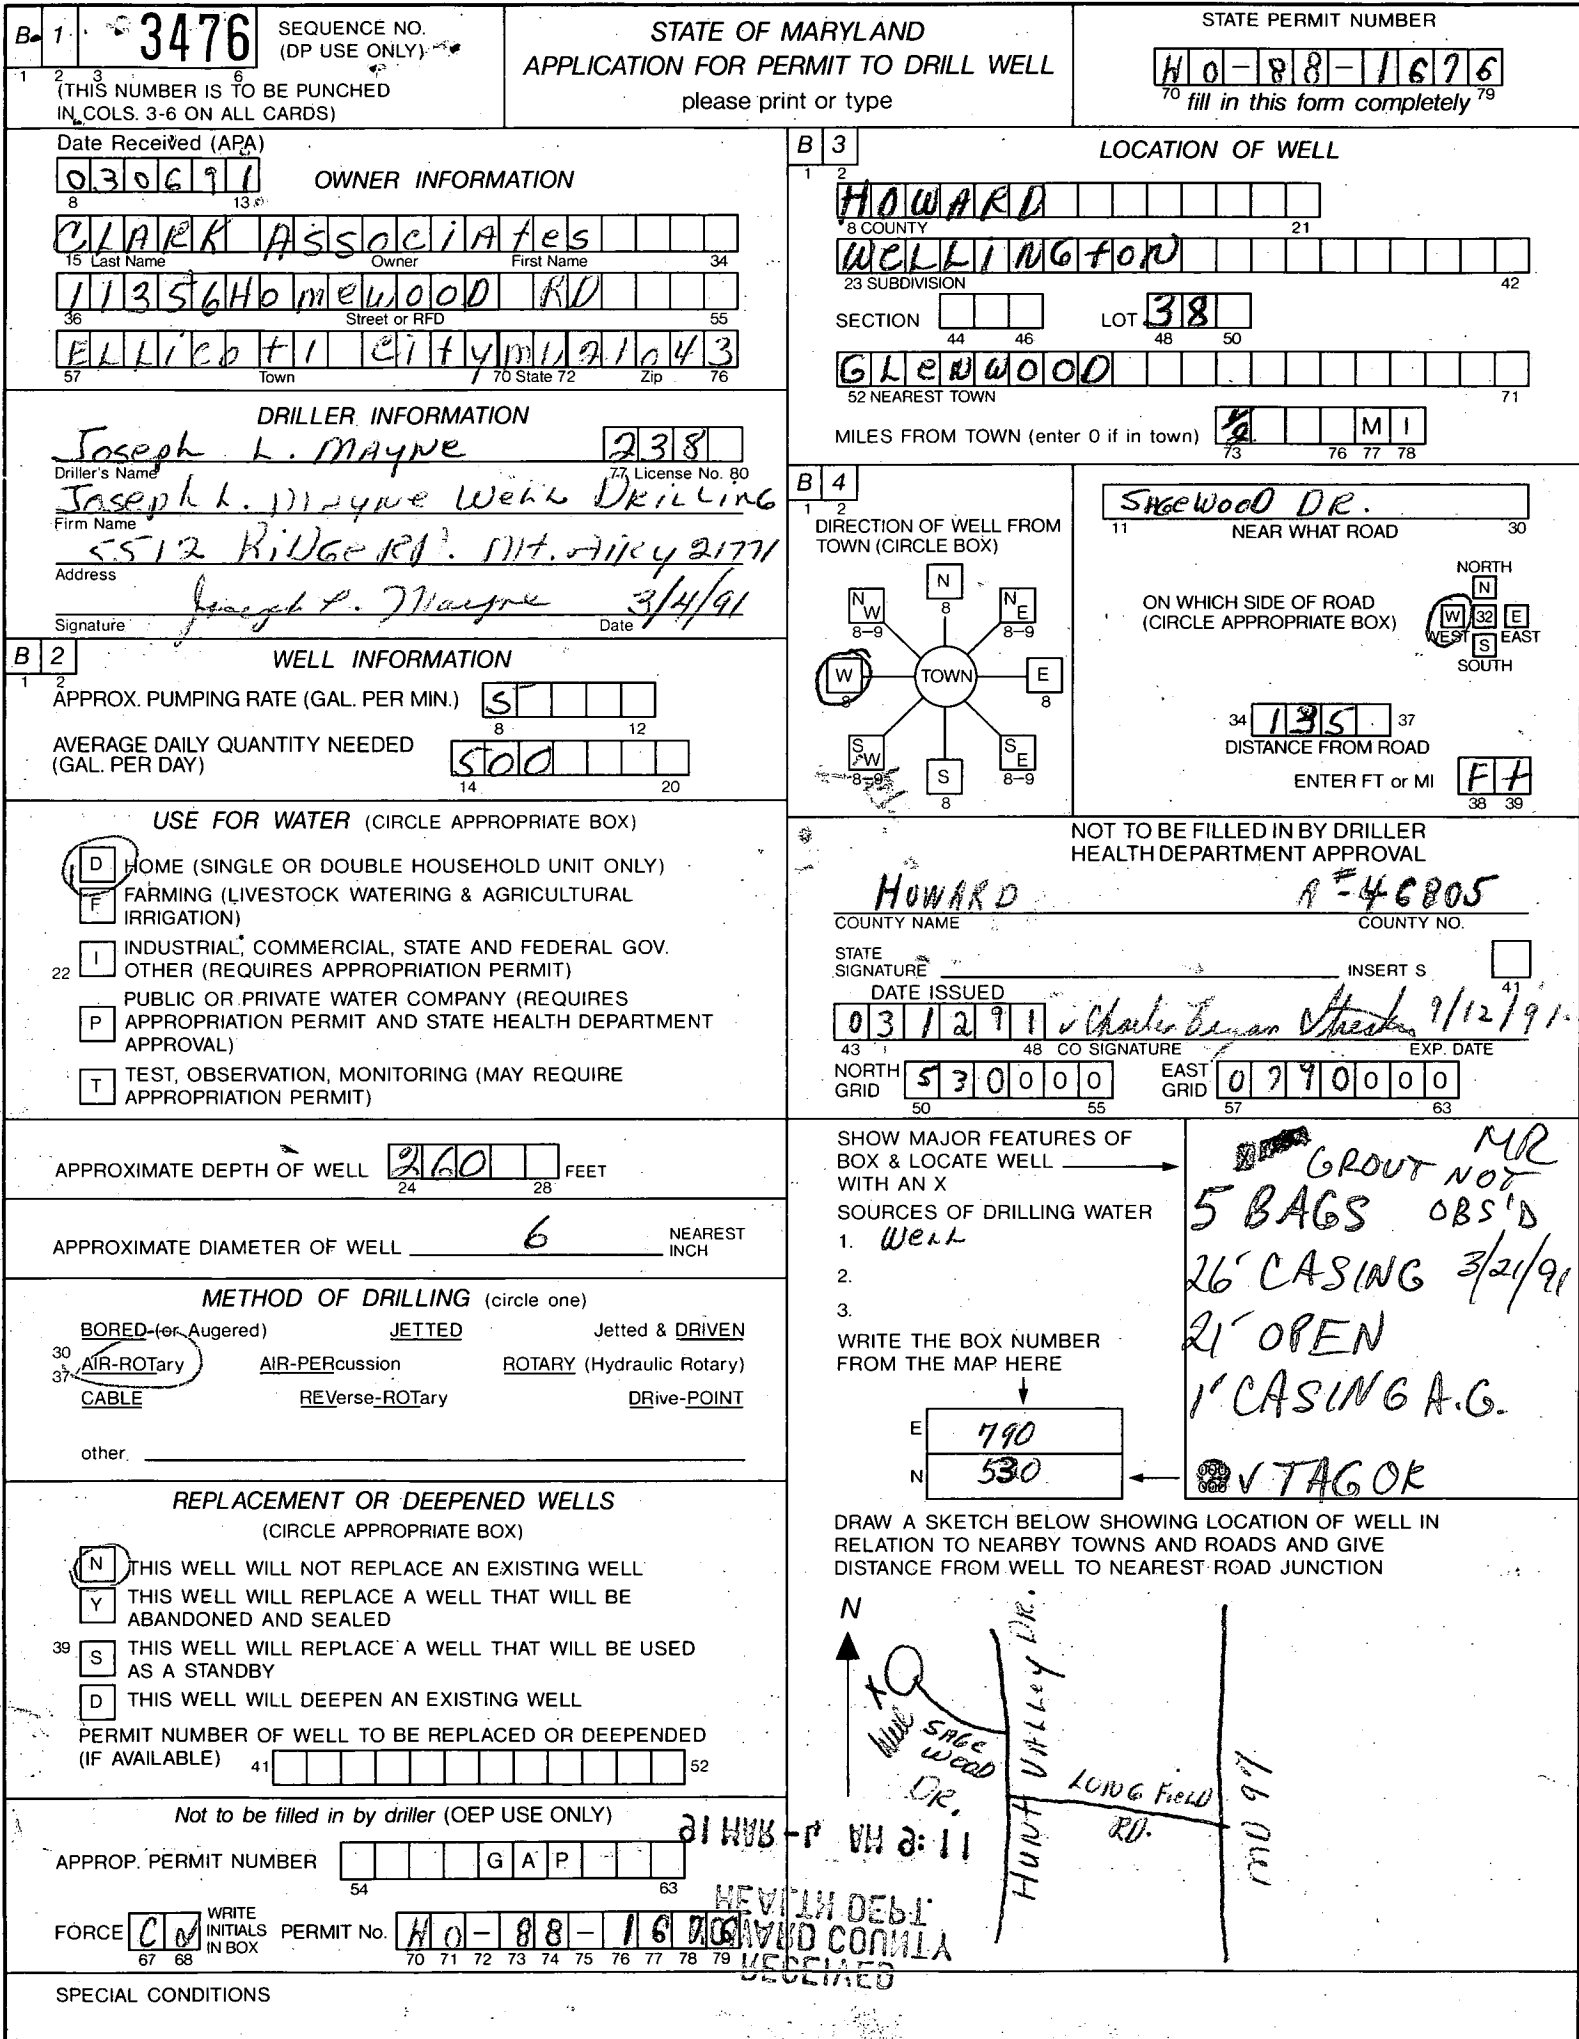 B 1 3476 SEQUENCE NO. (DP USE ONLY)
1 2 3 6
(THIS NUMBER IS TO BE PUNCHED
IN COLS. 3-6 ON ALL CARDS)
STATE OF MARYLAND
APPLICATION FOR PERMIT TO DRILL WELL
please print or type
STATE PERMIT NUMBER
HO-88-1676
70 fill in this form completely 79
Date Received (APA)
030691
8 13
OWNER INFORMATION
CLARK Associates
15 Last Name Owner First Name 34
11356 Homewood RD
36 Street or RFD 55
ELLicott City MD 21043
57 Town 70 State 72 Zip 76
DRILLER INFORMATION
Joseph L. MAYNE 238
Driller's Name 77 License No. 80
Joseph L. Mayne Well DRILLING
Firm Name
5512 RiDGe RD. Mt. Airy 21771
Address
Joseph L. Mayne 3/4/91
Signature Date
B 2 WELL INFORMATION
1 2
APPROX. PUMPING RATE (GAL. PER MIN.) 5
8 12
AVERAGE DAILY QUANTITY NEEDED
(GAL. PER DAY) 500
14 20
USE FOR WATER (CIRCLE APPROPRIATE BOX)
D HOME (SINGLE OR DOUBLE HOUSEHOLD UNIT ONLY)
F FARMING (LIVESTOCK WATERING & AGRICULTURAL
IRRIGATION)
I INDUSTRIAL, COMMERCIAL, STATE AND FEDERAL GOV.
22 OTHER (REQUIRES APPROPRIATION PERMIT)
PUBLIC OR PRIVATE WATER COMPANY (REQUIRES
P APPROPRIATION PERMIT AND STATE HEALTH DEPARTMENT
APPROVAL)
T TEST, OBSERVATION, MONITORING (MAY REQUIRE
APPROPRIATION PERMIT)
APPROXIMATE DEPTH OF WELL 260 FEET
24 28
APPROXIMATE DIAMETER OF WELL 6 NEAREST INCH
METHOD OF DRILLING (circle one)
BORED (or Augered) JETTED Jetted & DRIVEN
30 AIR-ROTary AIR-PERcussion ROTARY (Hydraulic Rotary)
37 CABLE REVerse-ROTary DRive-POINT
other
REPLACEMENT OR DEEPENED WELLS
(CIRCLE APPROPRIATE BOX)
N THIS WELL WILL NOT REPLACE AN EXISTING WELL
Y THIS WELL WILL REPLACE A WELL THAT WILL BE
ABANDONED AND SEALED
39 S THIS WELL WILL REPLACE A WELL THAT WILL BE USED
AS A STANDBY
D THIS WELL WILL DEEPEN AN EXISTING WELL
PERMIT NUMBER OF WELL TO BE REPLACED OR DEEPENDED
(IF AVAILABLE) 41 52
Not to be filled in by driller (OEP USE ONLY)
APPROP. PERMIT NUMBER G A P
54 63
FORCE WRITE INITIALS IN BOX PERMIT No. HO-88-1676
67 68 70 71 72 73 74 75 76 77 78 79
SPECIAL CONDITIONS
B 3 LOCATION OF WELL
1 2
HOWARD
8 COUNTY 21
WELLINGtON
23 SUBDIVISION 42
SECTION LOT 38
44 46 48 50
GLENWOOD
52 NEAREST TOWN 71
MILES FROM TOWN (enter 0 if in town) 1/2 M I
73 76 77 78
B 4
1 2
DIRECTION OF WELL FROM
TOWN (CIRCLE BOX)
N 8
NW 8-9 NE 8-9
W 8 TOWN E 8
SW 8-9 SE 8-9
S 8
SAGEWOOD DR.
11 NEAR WHAT ROAD 30
ON WHICH SIDE OF ROAD
(CIRCLE APPROPRIATE BOX)
NORTH
N
W 32 E
WEST EAST
S
SOUTH
34 135 37
DISTANCE FROM ROAD
ENTER FT or MI Ft
38 39
NOT TO BE FILLED IN BY DRILLER
HEALTH DEPARTMENT APPROVAL
HOWARD A #46805
COUNTY NAME COUNTY NO.
STATE
SIGNATURE INSERT S
41
DATE ISSUED
031291 9/12/91
43 48 CO SIGNATURE EXP. DATE
NORTH GRID 530000 EAST GRID 0790000
50 55 57 63
SHOW MAJOR FEATURES OF
BOX & LOCATE WELL
WITH AN X
SOURCES OF DRILLING WATER
1. WELL
2.
3.
WRITE THE BOX NUMBER
FROM THE MAP HERE
E 790
N 530
GROUT MR
NOT
5 BAGS OBS'D
26' CASING 3/21/91
21' OPEN
1' CASING A.G.
√ TAG OK
DRAW A SKETCH BELOW SHOWING LOCATION OF WELL IN
RELATION TO NEARBY TOWNS AND ROADS AND GIVE
DISTANCE FROM WELL TO NEAREST ROAD JUNCTION
N
X
Well
SAGE WOOD DR.
HUNT VALLEY DR.
LONG Field RD.
MD 97
RECEIVED
HOWARD COUNTY
HEALTH DEPT.
91 MAR -4 AM 9:11